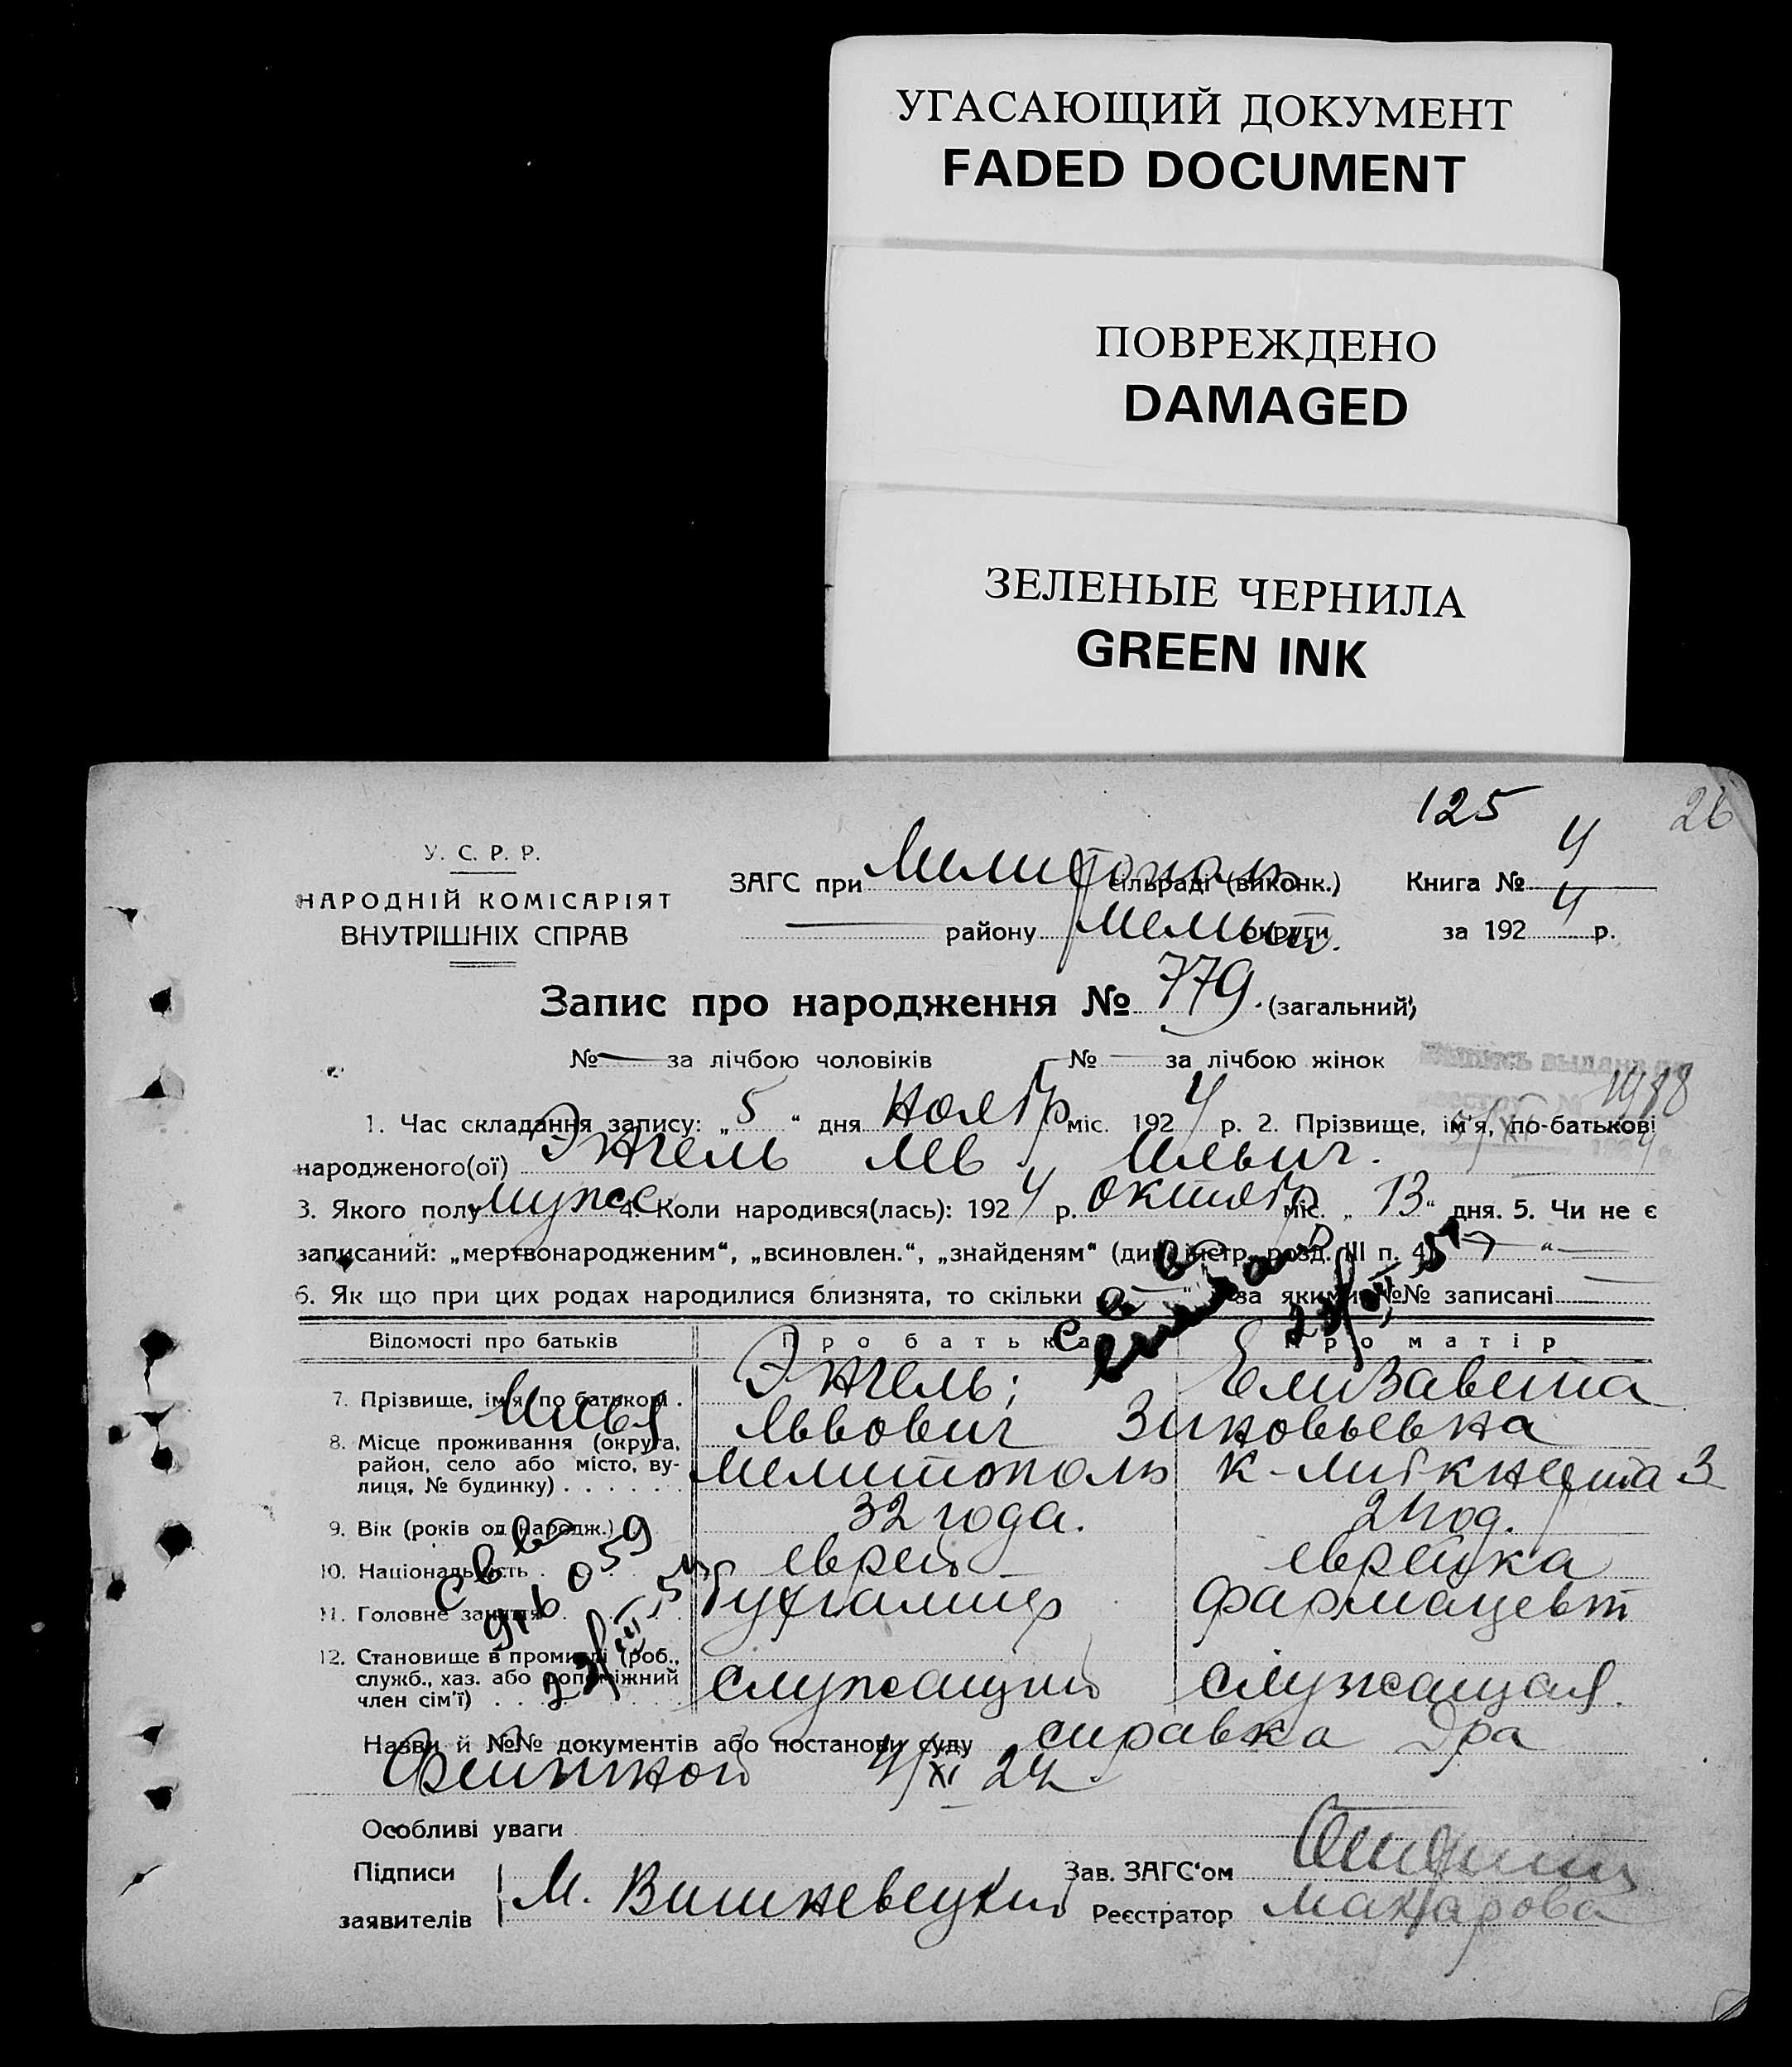 УГАСАЮЩИЙ ДОКУМЕНТ
FADED DOCUMENT
ПОВРЕЖДЕНО
DAMAGED
ЗЕЛЕНЫЕ ЧЕРНИЛА
GREEN INK
125 26
У. С. Р. Р.
НАРОДНІЙ КОМІСАРІЯТ
ВНУТРІШНІХ СПРАВ
ЗАГС при сільраді (виконк.) Книга № 4
району округи за 1924 р.
Запис про народження № 779. (загальний)
№ — за лічбою чоловіків № — за лічбою жінок
1. Час складання запису: „ 5 “ дня Ноябр міс. 1924 р. 2. Прізвище, ім'я, по-батькові
народженого(ої) Энгель Лев Ильич.
3. Якого полу мужс 4. Коли народився(лась): 1924 р. октябр міс. „ 13 “ дня. 5. Чи не є
записаний: „мертвонародженим“, „всиновлен.“, „знайденям“ (див. інстр. розд. III п. 4)
6. Як що при цих родах народилися близнята, то скільки „—“ за якими №№ записані
Відомості про батьків Про батька Про матір
7. Прізвище, ім'я, по батькові . Энгель; Елизавета
Илья Львович Зиновьевна
8. Місце проживання (округа,
район, село або місто, ву-
лиця, № будинку) . . . . . . Мелитополь К-Либкнехта 3
9. Вік (років од народж.) 32 года. 24 год.
10. Національність . еврей еврейка
11. Головне заняття . Бухгалтер фармацевт
12. Становище в промислі (роб.,
служб., хаз. або допоміжний
член сім'ї) . . . служащий служащая.
Назви й №№ документів або постанови суду справка Дра
4/XI 24
Особливі уваги
Підписи
заявителів М. Вишневецкий
Зав. ЗАГС'ом
Реєстратор